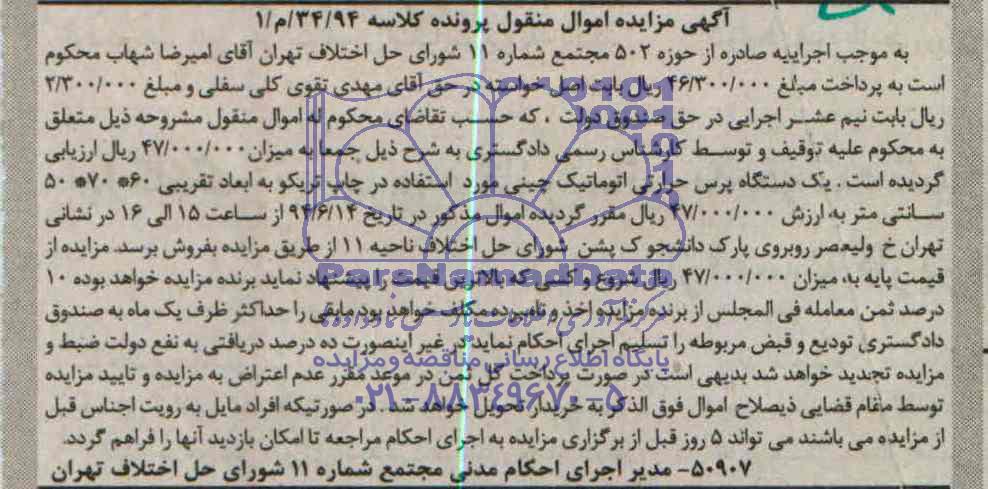 آگهی مزایده اموال منقول پرونده کلاسه ۳۴/۹۴/م/۱
به موجب اجراییه صادره از حوزه ۵۰۲ مجتمع شماره ۱۱ شورای حل اختلاف تهران آقای امیرضا شهاب محکوم
است به پرداخت مبلغ ۴۶/۳۰۰/۰۰۰ ریال بابت اصل خواسته در حق آقای مهدی تقوی کلی سفلی و مبلغ ۲/۳۰۰/۰۰۰
ریال بابت نیم عشر اجرایی در حق صندوق دولت ، که حسب تقاضای محکوم له اموال منقول مشروحه ذیل متعلق
به محکوم علیه توقیف و توسط کارشناس رسمی دادگستری به شرح ذیل جمعا به میزان ۴۷/۰۰۰/۰۰۰ ریال ارزیابی
گردیده است . یک دستگاه پرس حرارتی اتوماتیک چینی مورد استفاده در چاپ تریکو به ابعاد تقریبی ۶۰* ۷۰* ۵۰
سانتی متر به ارزش ۴۷/۰۰۰/۰۰۰ ریال مقرر گردیده اموال مذکور در تاریخ ۹۴/۶/۱۴ از ساعت ۱۵ الی ۱۶ در نشانی
تهران خ ولیعصر روبروی پارک دانشجو ک پشن شورای حل اختلاف ناحیه ۱۱ از طریق مزایده بفروش برسد. مزایده از
قیمت پایه به میزان ۴۷/۰۰۰/۰۰۰ ریال شروع و کسی که بالاترین قیمت را پیشنهاد نماید برنده مزایده خواهد بوده ۱۰
درصد ثمن معامله فی المجلس از برنده مزایده اخذ و نامبرده مکلف خواهد بود مابقی را حداکثر ظرف یک ماه به صندوق
دادگستری تودیع و قبض مربوطه را تسلیم اجرای احکام نماید در غیر اینصورت ده درصد دریافتی به نفع دولت ضبط و
مزایده تجدید خواهد شد بدیهی است در صورت پرداخت کل ثمن در موعد مقرر عدم اعتراض به مزایده و تایید مزایده
توسط مقام قضایی ذیصلاح اموال فوق الذکر به خریدار تحویل خواهد شد . در صورتیکه افراد مایل به رویت اجناس قبل
از مزایده می باشند می تواند ۵ روز قبل از برگزاری مزایده به اجرای احکام مراجعه تا امکان بازدید آنها را فراهم گردد.
۵۰۹۰۷- مدیر اجرای احکام مدنی مجتمع شماره ۱۱ شورای حل اختلاف تهران
ParsNamadData
پایگاه اطلاع رسانی مناقصه و مزایده
۰۲۱-۸۸۳۴۹۶۷۰-۵